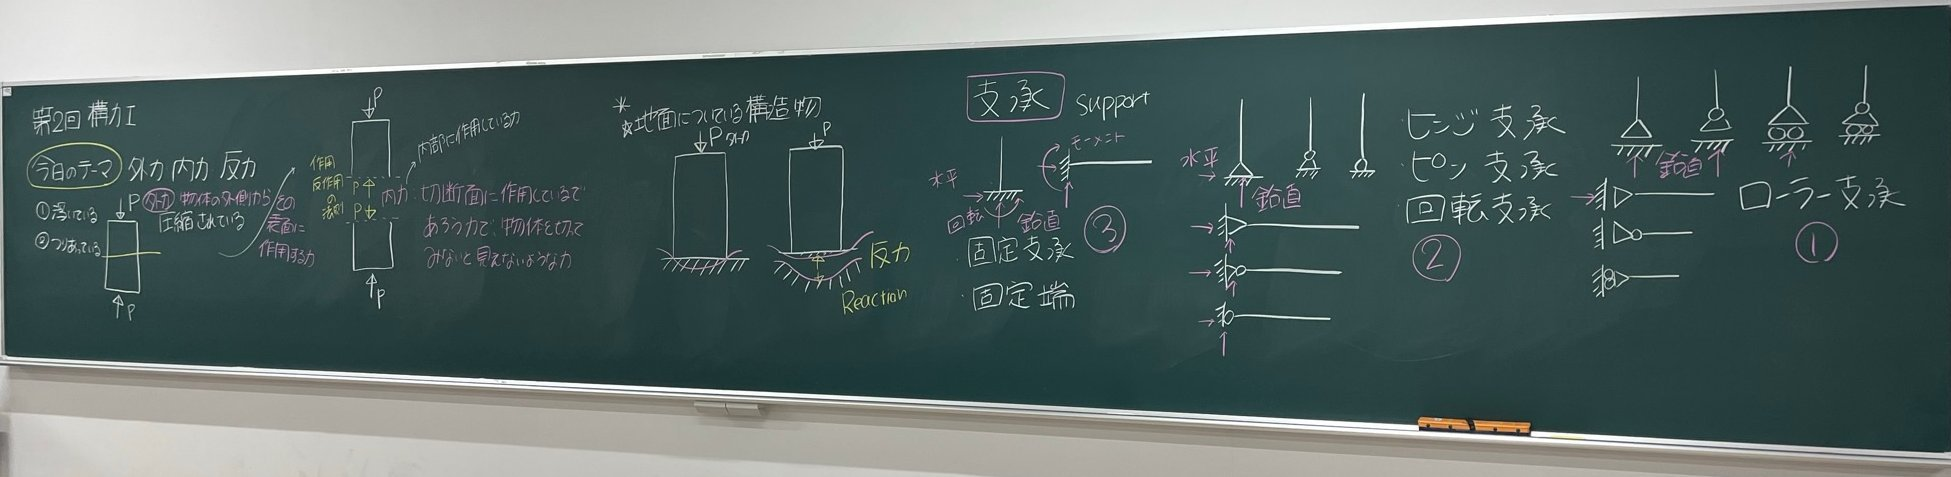 第2回 構力I
今日のテーマ 外力 内力 反力
①浮いている
②つりあっている
P
外力 物体の外側から
その表面に
作用する力
圧縮されている
P
P
作用
反作用
の
法則
P
P
内部に作用している力
内力:切断面に作用しているで
あろう力で、物体を切って
みないと見えないような力
P
※
☆地面についている構造物
P 外力
P
反力
Reaction
支承 support
水平
回転
鉛直
モーメント
・固定支承
・固定端
③
水平
鉛直
・ヒンジ支承
・ピン支承
・回転支承
②
鉛直
ローラー支承
①